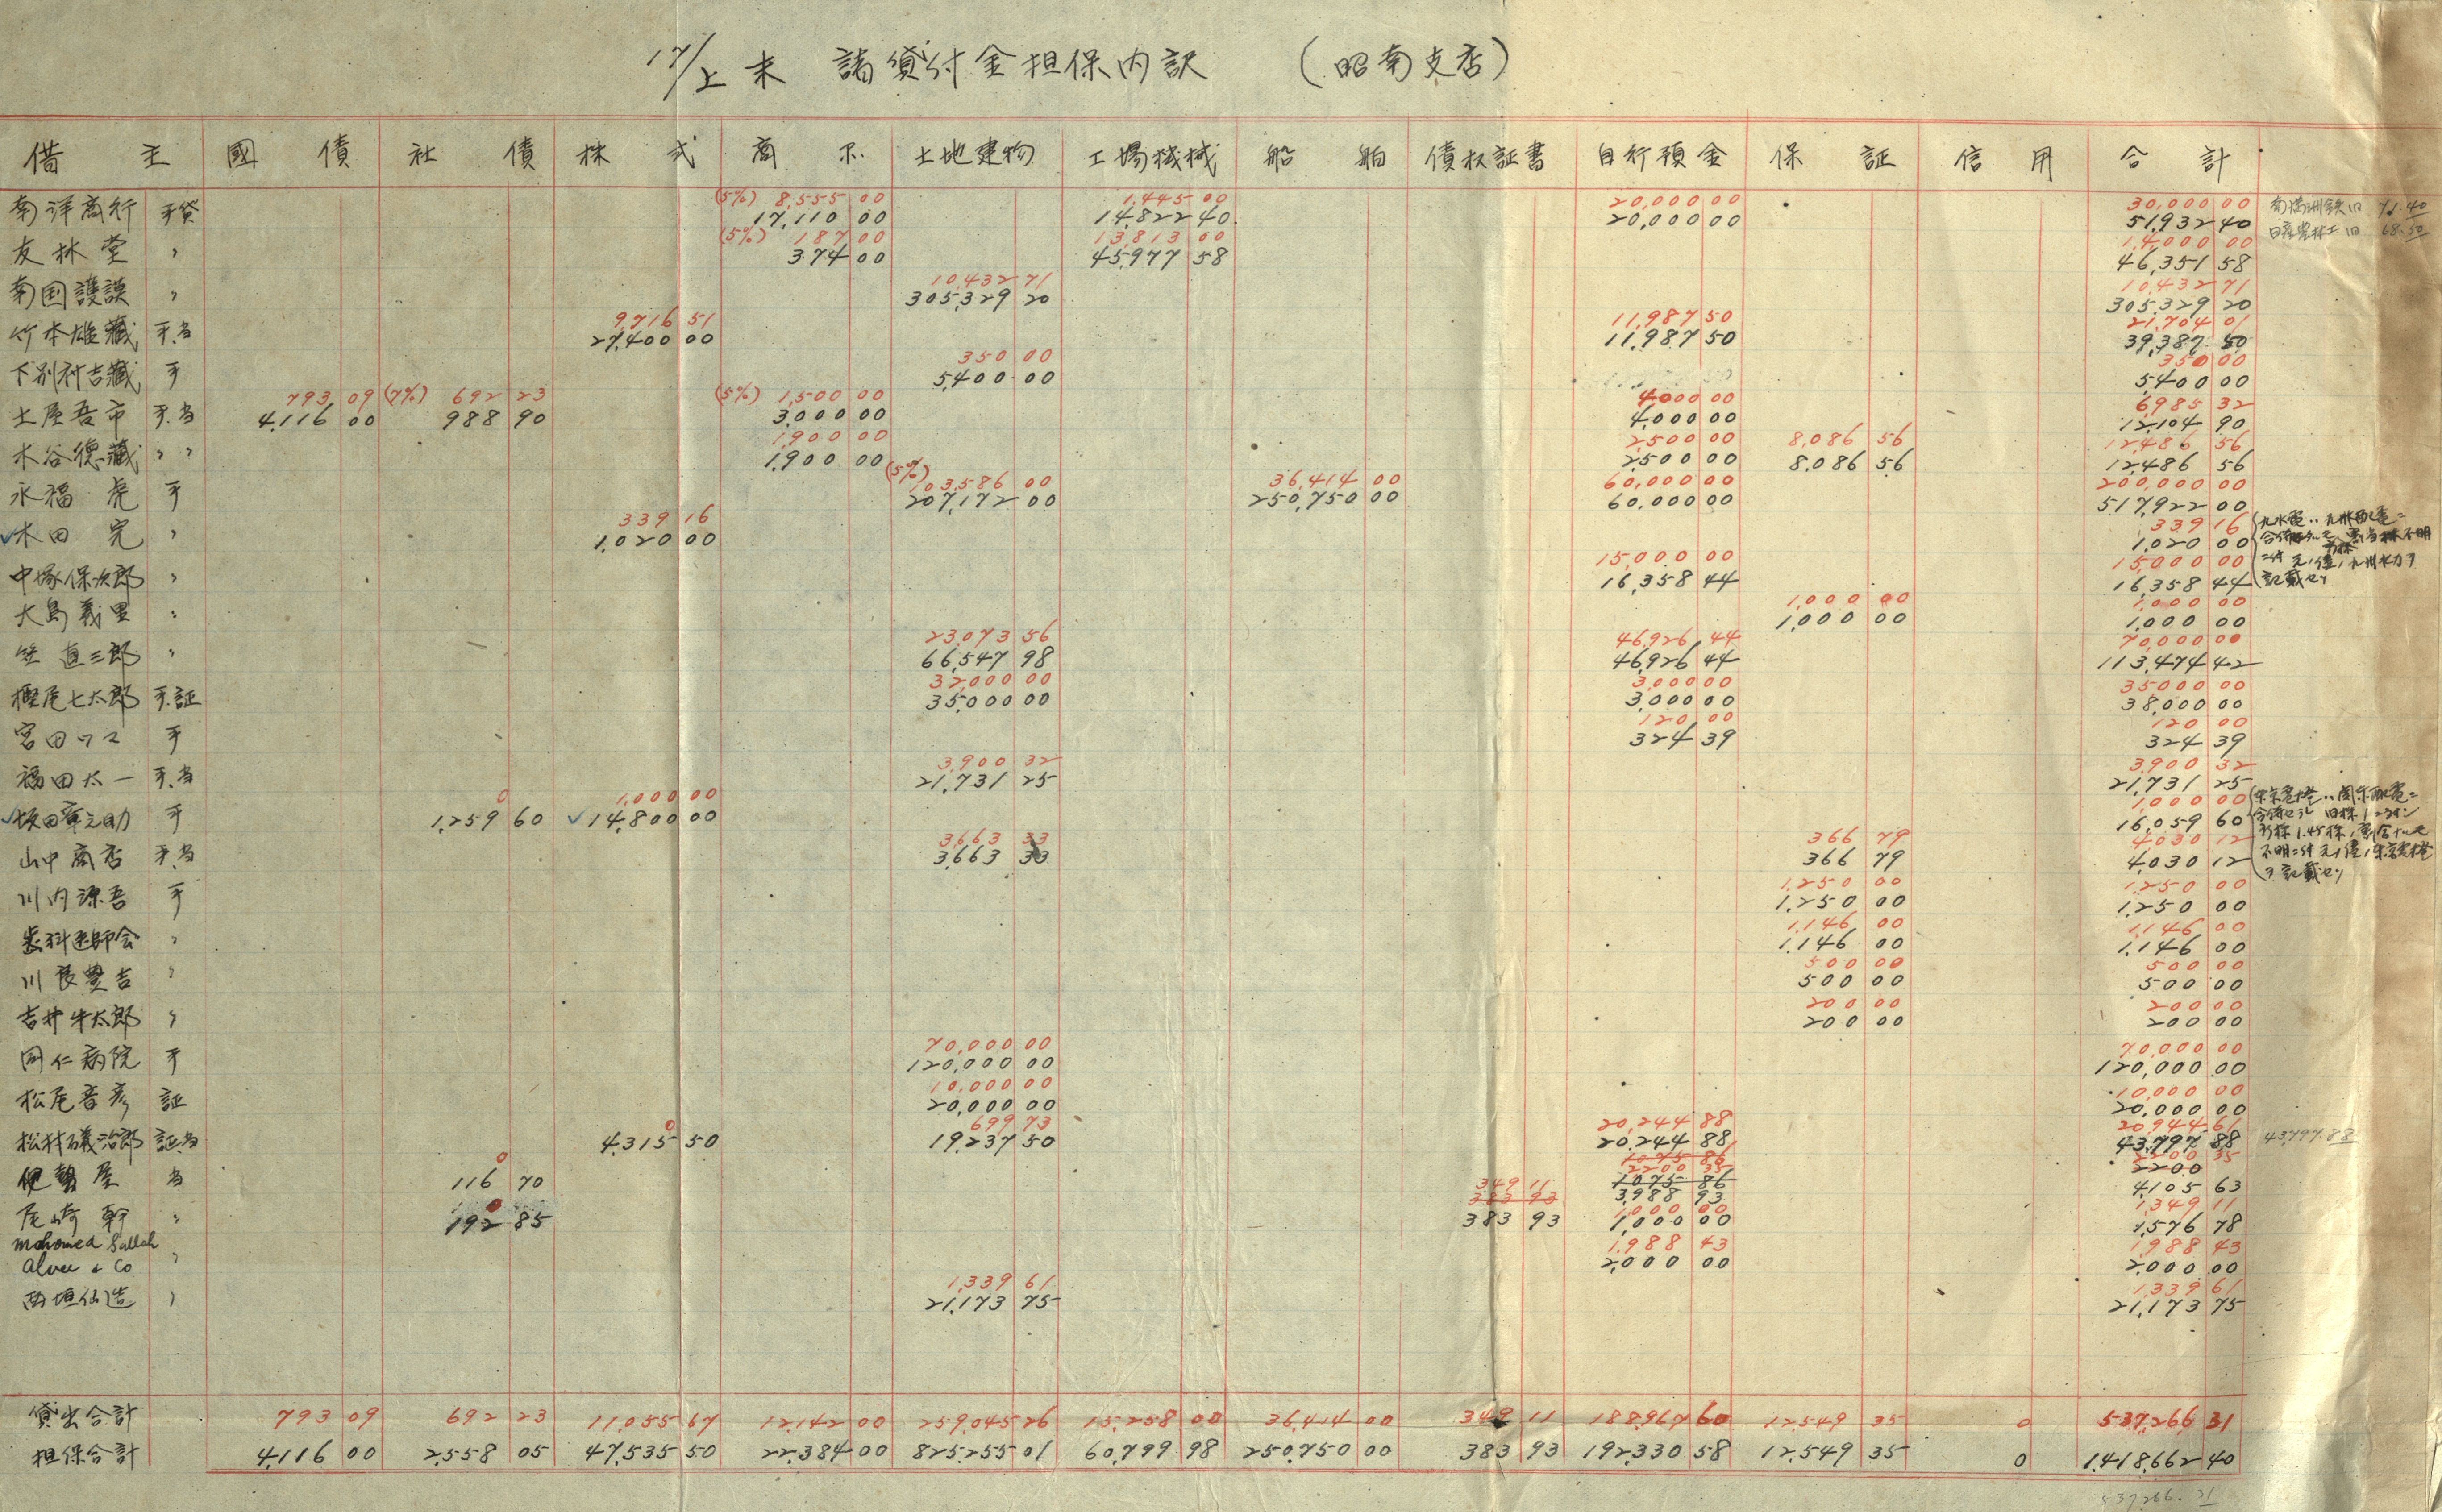 17/上末 諸貸付金担保内訳 (昭南支店)
借主 國債 社債 株式 商品 土地建物 工場機械 船舶 債权証書 自行預金 保証 信用 合計
(5%) 8,555 00 1,445 00 20,000 00 30,000 00
南洋商行 手貸 17,110 00 14,822 40 20,000 00 51,932 40
(5%) 187 00 13,813 00 14,000 00
友林堂 〃 374 00 45,977 58 46,351 58
10,432 71 10,432 71
南国護謨 〃 305,329 20 305,329 20
9,716 51 11,987 50 21,704 01
竹本雄藏 手.当 27,400 00 11,987 50 39,387 50
350 00 350 00
下別府吉藏 手 5,400 00 5,400 00
793 09 (7%) 692 23 (5%) 1,500 00 4,000 00 6,985 32
土屋吾市 手.当 4,116 00 988 90 3,000 00 4,000 00 12,104 90
1,900 00 2,500 00 8,086 56 12,486 56
木谷徳藏 〃 〃 1,900 00 2,500 00 8,086 56 12,486 56
(5%) 103,586 00 36,414 00 60,000 00 200,000 00
永福 虎 手 207,172 00 250,750 00 60,000 00 517,922 00
339 16 339 16
木田 完 〃 1,020 00 1,020 00
15,000 00 15,000 00
中塚保次郎 〃 16,358 44 16,358 44
1,000 00 1,000 00
大島義里 〃 1,000 00 1,000 00
23,073 56 46,926 44 70,000 00
笠 直三郎 〃 66,547 98 46,926 44 113,474 42
32,000 00 3,000 00 35,000 00
樫尾七太郎 手.証 35,000 00 3,000 00 38,000 00
120 00 120 00
宮田ツマ 手 324 39 324 39
3,900 32 3,900 32
福田太一 手.当 21,731 25 21,731 25
0 1,000 00 1,000 00
坂田章之助 手 1,259 60 14,800 00 16,059 60
3,663 33 366 79 4,030 12
山中商店 手.当 3,663 33 366 79 4,030 12
1,250 00 1,250 00
川内源吾 手 1,250 00 1,250 00
1,146 00 1,146 00
歯科医師会 〃 1,146 00 1,146 00
500 00 500 00
川良豊吉 〃 500 00 500 00
200 00 200 00
吉井牛太郎 〃 200 00 200 00
70,000 00 70,000 00
同仁病院 手 120,000 00 120,000 00
10,000 00 10,000 00
松尾音彦 証 20,000 00 20,000 00
0 699 73 20,244 88 20,944 61
松村礒治郎 証.当 4,315 50 19,237 50 20,244 88 43,797 88 43,797.88
0 1075 86 2200 35 2200 35
伊勢屋 当 116 70 1075 86 3,988 93 2200 4,105 63
0 349 11 383 93 1,000 00 1,349 11
尾崎 幹 〃 192 85 383 93 1,000 00 1,576 78
Mohomed Sallah 1,988 43 1,988 43
Alvee & Co 〃 2,000 00 2,000 00
1,339 61 1,339 61
西垣仙造 〃 21,173 75 21,173 75
貸出合計 793 09 692 23 11,055 67 12,142 00 259,045 26 15,258 00 36,414 00 349 11 188,967 60 12,549 35 0 537,266 31
担保合計 4,116 00 2,558 05 47,535 50 22,384 00 825,255 01 60,799 98 250,750 00 383 93 192,330 58 12,549 35 0 1,418,662 40
537266.31